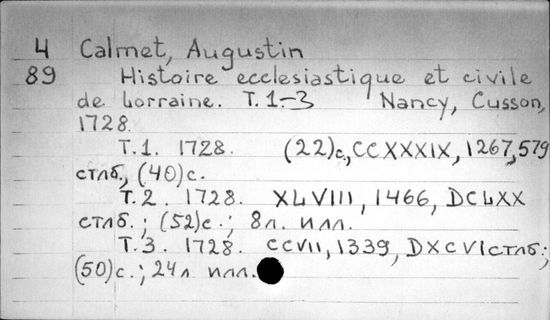 4 Calmet, Augustin
89 Histoire ecclesiastique et civile
de Lorraine. T. 1-3 Nancy, Cusson,
1728.
T.1. 1728. (22)с., CCXXXIX, 1267, 579
стлб., (40)с.
T.2. 1728. XLVIII, 1466, DCLXX
стлб.; (52)с.; 8л. илл.
T.3. 1728. CCVII, 1339, DXCVI стлб.;
(50)с.; 24л илл.